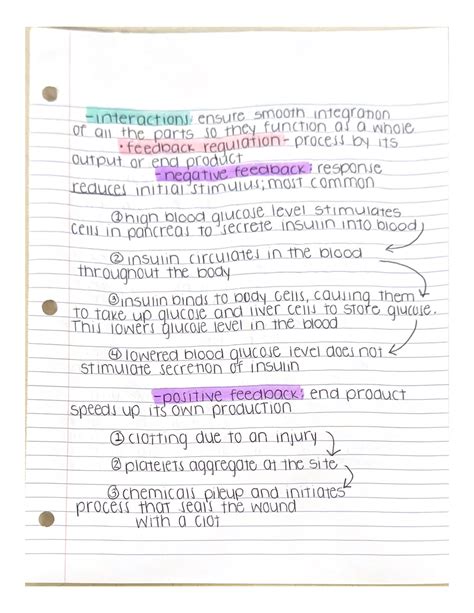 -interactions: ensure smooth integration
of all the parts so they function as a whole
• feedback regulation - process by its
output or end product
-negative feedback: response
reduces initial stimulus; most common
① high blood glucose level stimulates
cells in pancreas to secrete insulin into blood
② insulin circulates in the blood
throughout the body
③ insulin binds to body cells, causing them
to take up glucose and liver cells to store glucose.
This lowers glucose level in the blood
④ lowered blood glucose level does not
stimulate secretion of insulin
-positive feedback: end product
speeds up its own production
① clotting due to an injury
② platelets aggregate at the site
③ chemicals pileup and initiates
process that seals the wound
with a clot